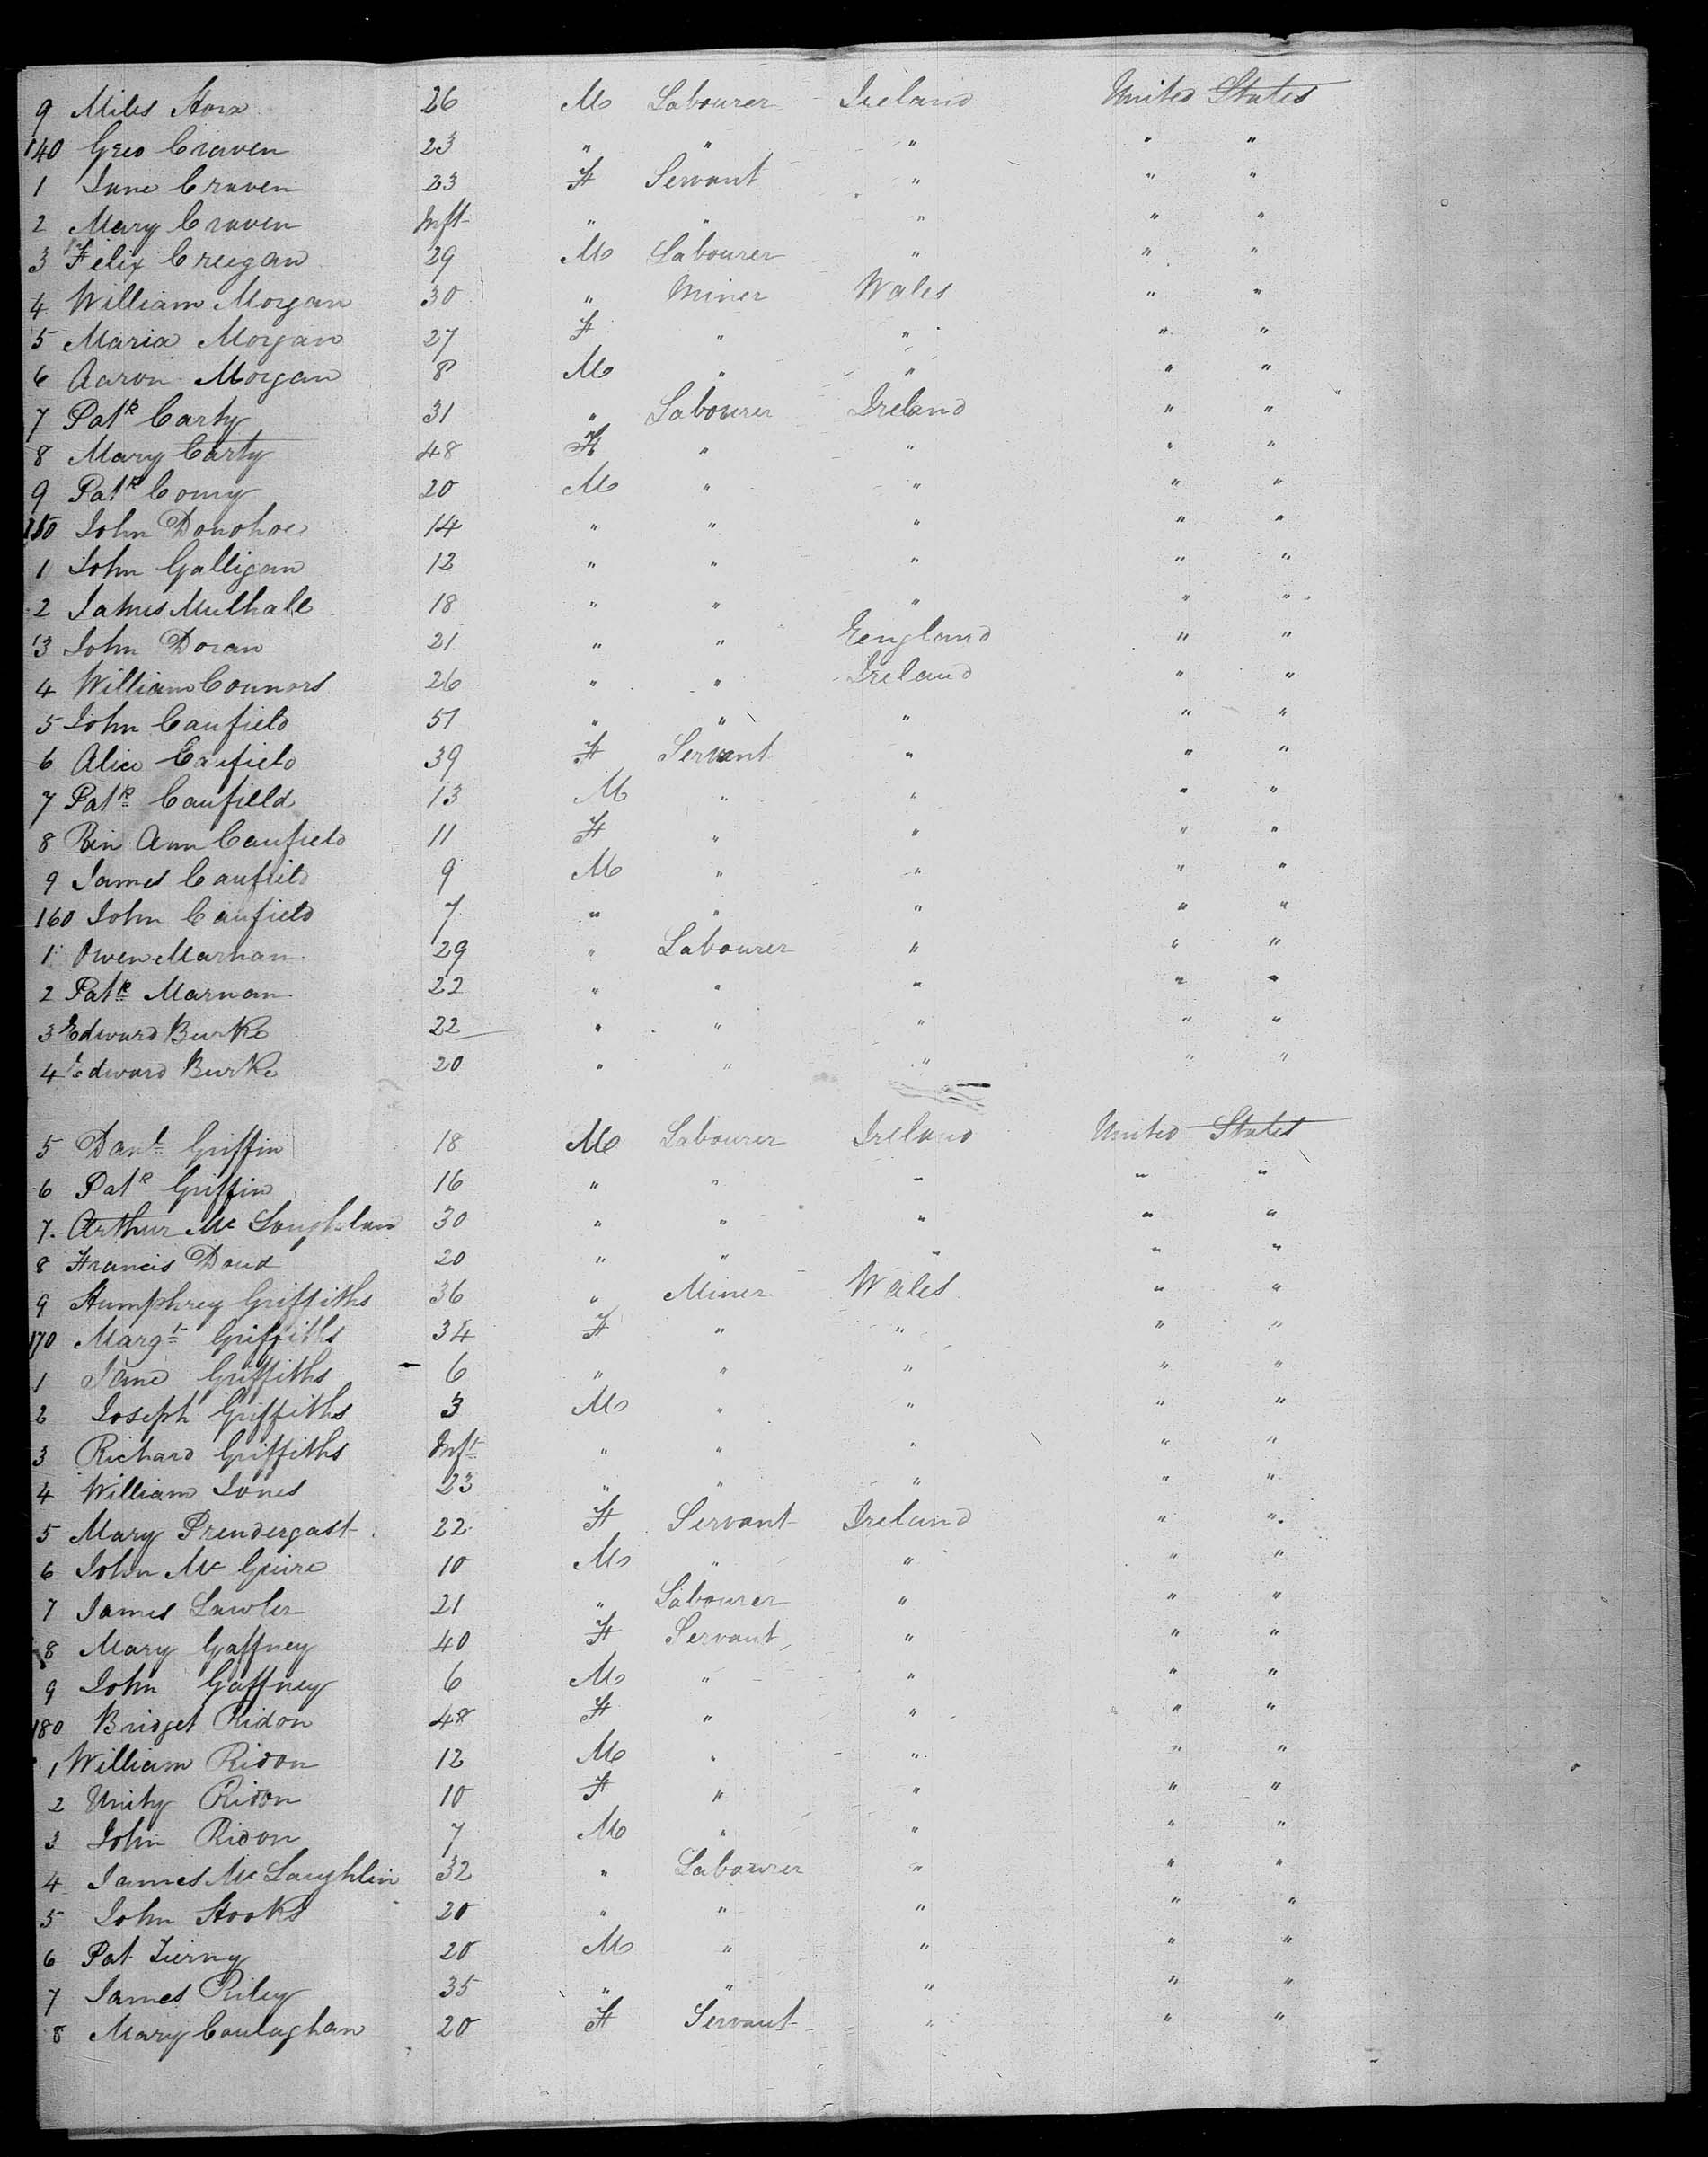 9 Miles Hora 26 M Labourer Ireland United States
140 Geo Craven 23 " " " " "
1 Jane Craven 23 F Servant " " "
2 Mary Craven Inft " " " " "
3 Felix Creegan 29 M Labourer " " "
4 William Morgan 30 " Miner Wales " "
5 Maria Morgan 27 F " " " "
6 Aaron Morgan 8 M " " " "
7 Patk Carty 31 " Labourer Ireland " "
8 Mary Carty 48 F " " " "
9 Patk Comy 20 M " " " "
150 John Donohoe 14 " " " " "
1 John Galligan 12 " " " " "
2 James Mulhall 18 " " " " "
3 John Doran 21 " " Eengland " "
4 William Connors 26 " " Ireland " "
5 John Caufield 51 " " " " "
6 Alice Caufield 39 F Servant " " "
7 Patk Caufield 13 M " " " "
8 Ann Caufield 11 F " " " "
9 James Caufield 9 M " " " "
160 John Caufield 7 " " " " "
1 Owen Marnan 29 " Labourer " " "
2 Patk Marnan 22 " " " " "
3 Edward Burke 22 " " " " "
4 Edward Burke 20 " " " " "
5 Danl Griffin 18 M Labourer Ireland United States
6 Patk Griffin 16 " " " " "
7. Arthur Mc Loughlan 30 " " " " "
8 Francis Doud 20 " " " " "
9 Humphrey Griffiths 36 " Miner Wales " "
170 Margt Griffiths 34 F " " " "
1 Jane Griffiths 6 " " " " "
2 Joseph Griffiths 3 M " " " "
3 Richard Griffiths Inft " " " " "
4 William Jones 23 " " " " "
5 Mary Prendergast 22 F Servant Ireland " "
6 John Mc Guire 10 M " " " "
7 James Lawler 21 " Labourer " " "
8 Mary Gaffney 40 F Servant " " "
9 John Gaffney 6 M " " " "
180 Bridget Ridon 48 F " " " "
1 William Ridon 12 M " " " "
2 Unity Ridon 10 F " " " "
3 John Ridon 7 M " " " "
4 James Mc Laughlin 32 " Labourer " " "
5 John Hooks 20 " " " " "
6 Pat Tierny 20 M " " " "
7 James Riley 35 " " " " "
8 Mary Coulaghan 20 F Servant " " "